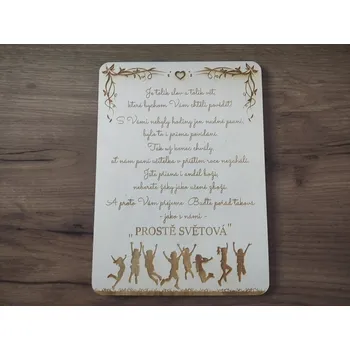 Je tolik slov a tolik vět,
které bychom Vám chtěli povědět!
S Vámi nebyly hodiny jen nudné psaní,
bylo to i prima povídání.
Tak už konec chvály,
ať nám paní učitelka v příštím roce nezchálí.
Jste přísná i anděl boží,
neberete žáky jako učené zboží.
A proto Vám přejeme: Buďte pořád taková
- jako s námi -
„PROSTĚ SVĚTOVÁ"